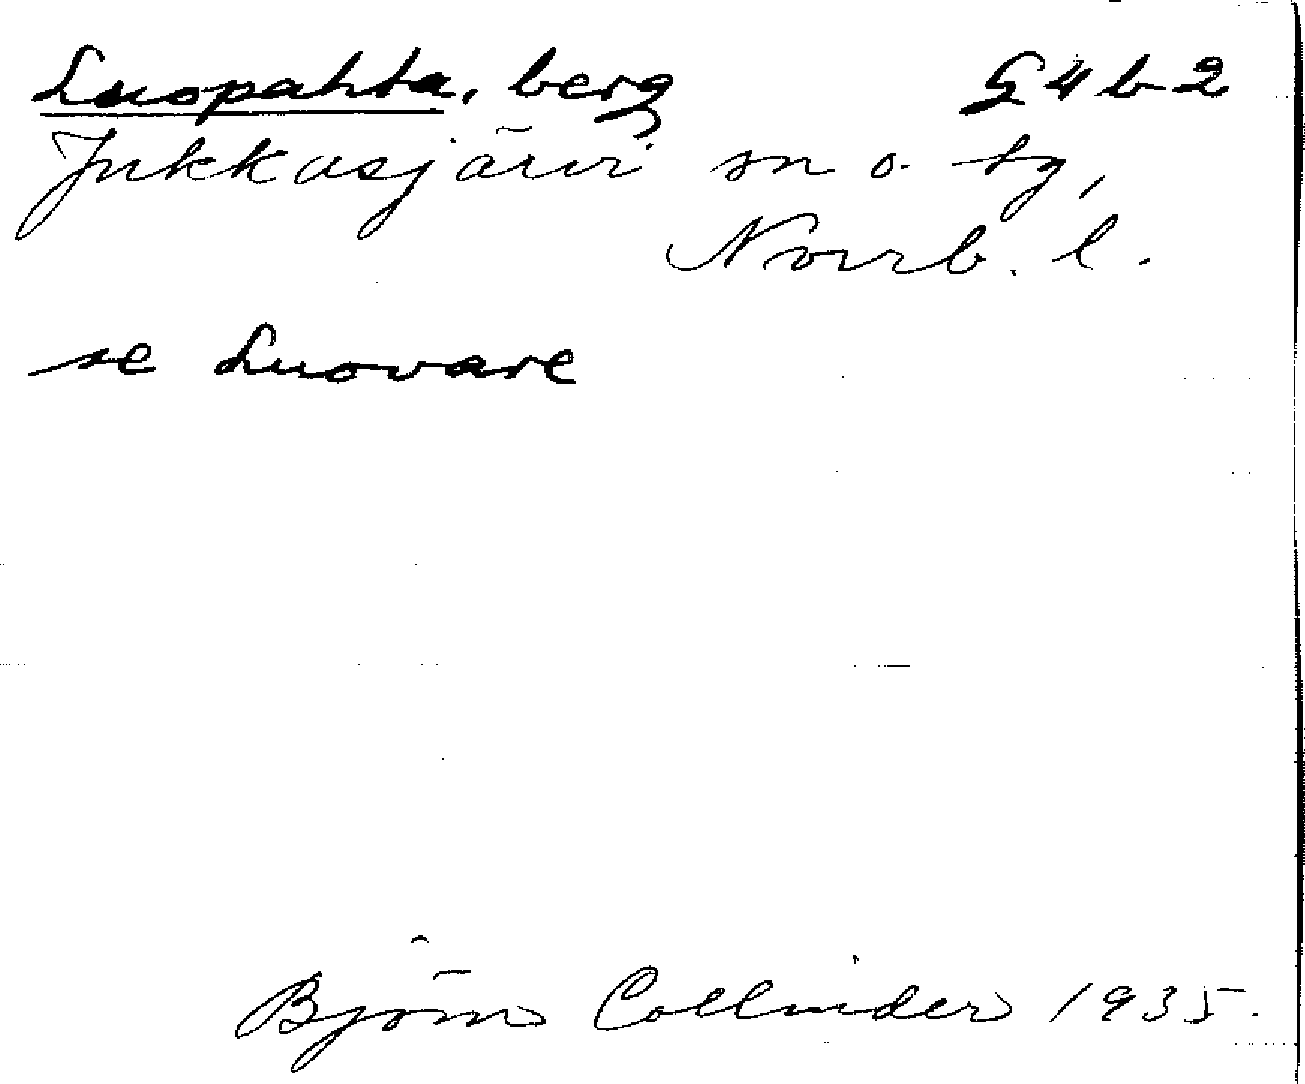 Luopahta, berg G4b2
Jukkasjärvi sn o. tg,
Norrb. l.
se Luovare
Björn Collinder 1935.